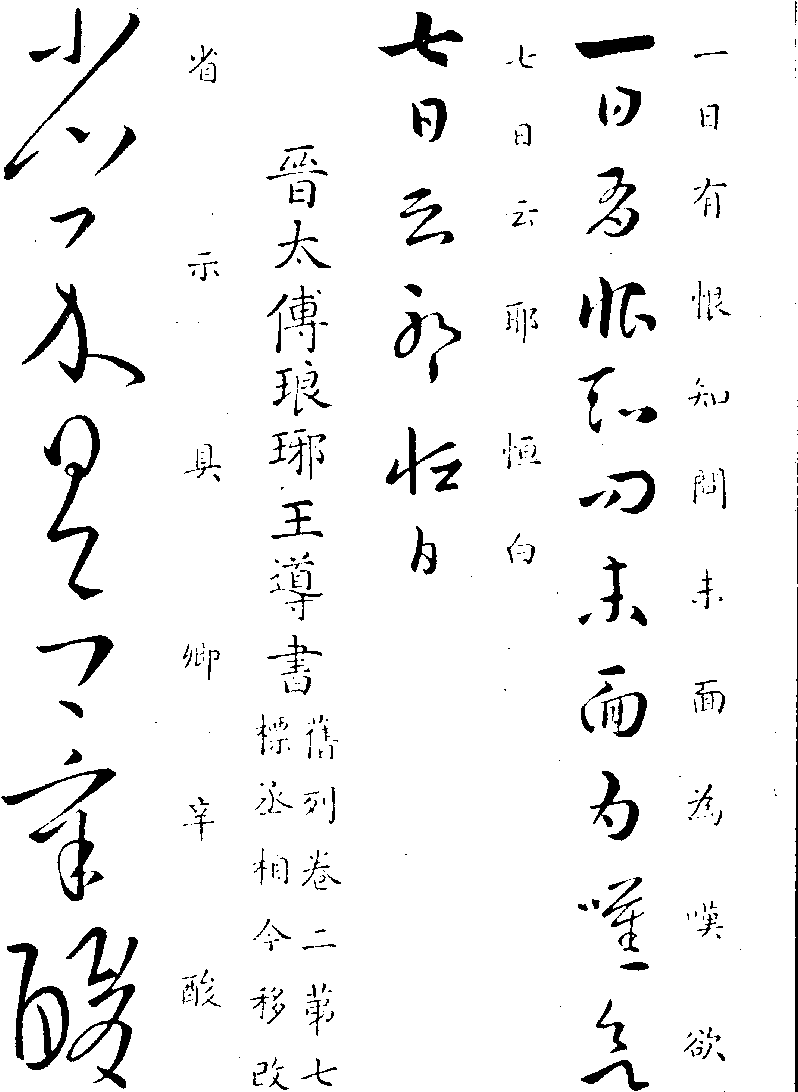 一日有恨知問未面為嘆欲
一日有恨知問未面為嘆欲
七日云耶恒白
七日云耶恒白
晉太傅琅琊王導書
舊列卷二第七
標丞相今移改
省示具卿辛酸
省示具卿辛酸